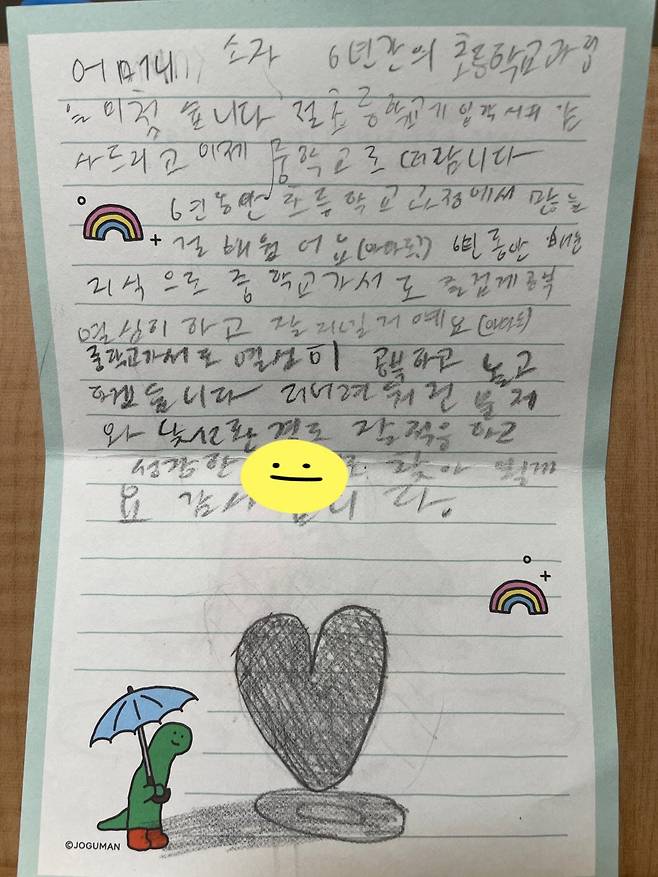 어머니 소자 6년간의 초등학교과정
을 마쳤습니다 절 초등학교에 입학시켜 감
사드리고 이제 중학교로 떠납니다
6년동안 초등학교과정에서 많은
걸 배웠어요(아마도) 6년동안 배운
지식으로 중학교가서도 즐겁게 공부
열심이하고 잘 지낼거예요(아마도)
중학교가서도 열심이 공부하고 놀고
하겠습니다 내려쳐진 문제
와 낯선환경도 잘 적응하고
성장한 찾아 뵐게
요 감사 니다.
©JOGUMAN